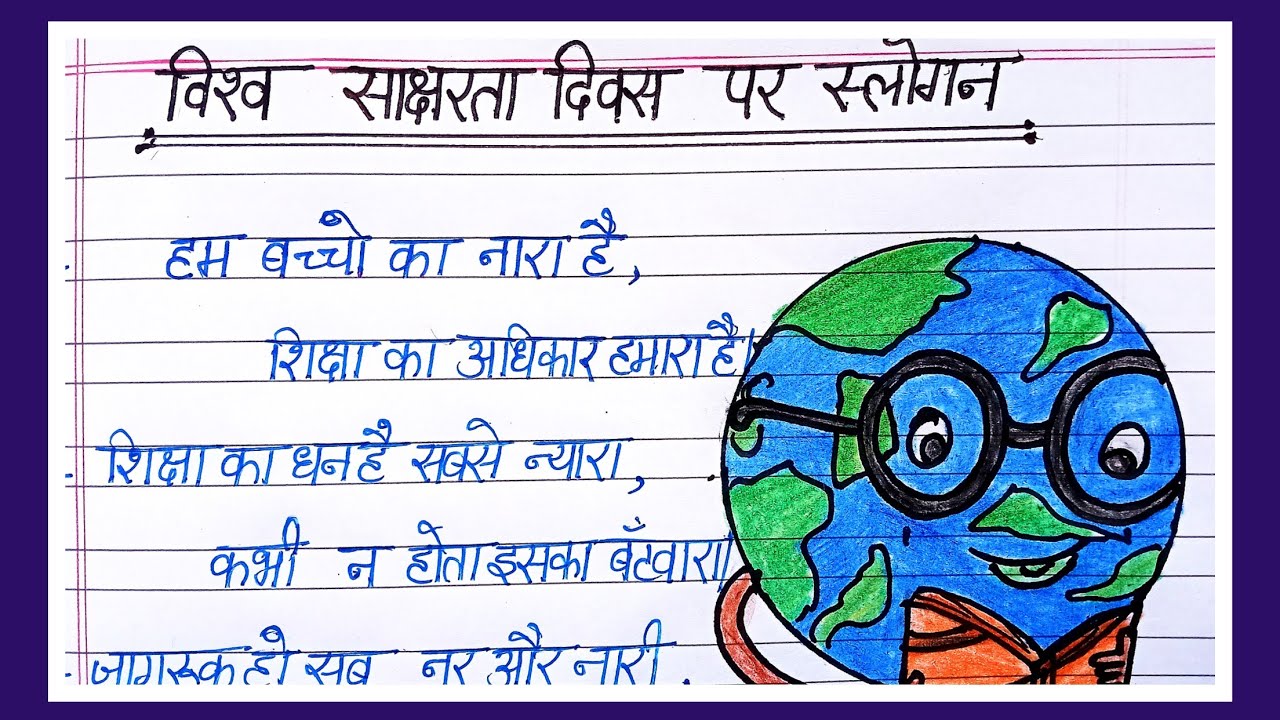 विश्व साक्षरता दिवस पर स्लोगन
हम बच्चों का नारा है,
शिक्षा का अधिकार हमारा है।
शिक्षा का धन है सबसे न्यारा,
कभी न होता इसका बँटवारा।
जागरूक हो सब नर और नारी,